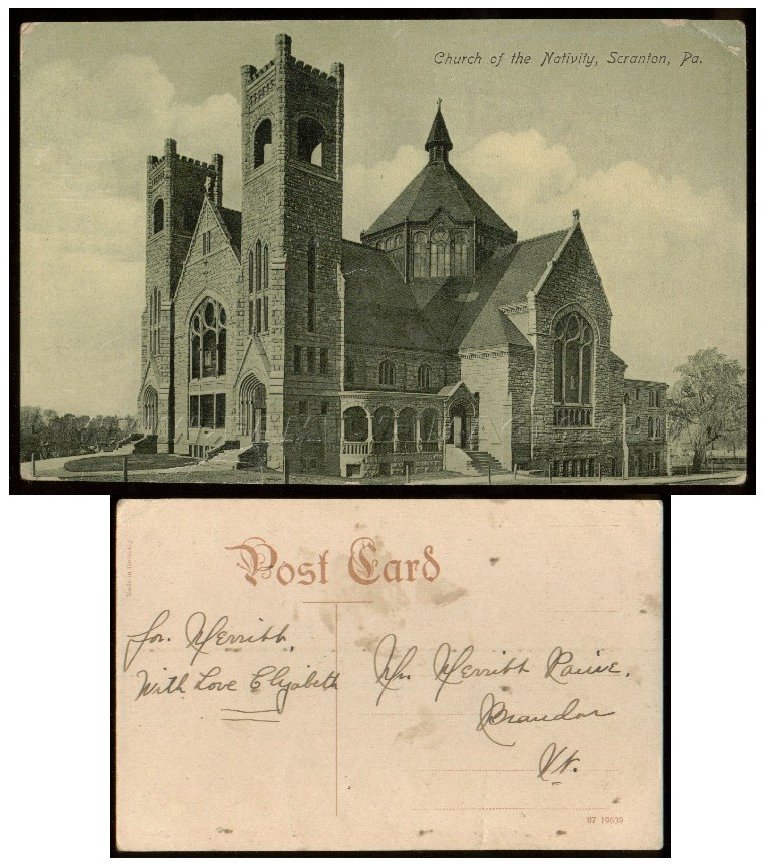 Church of the Nativity, Scranton, Pa.
Made in Germany
Post Card
for. Merritt.
With Love Elizabeth
Mr. Merritt
Brandon
Vt.
07 19639